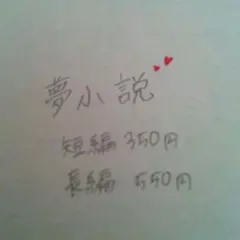 夢小説
短編 350円
長編 550円